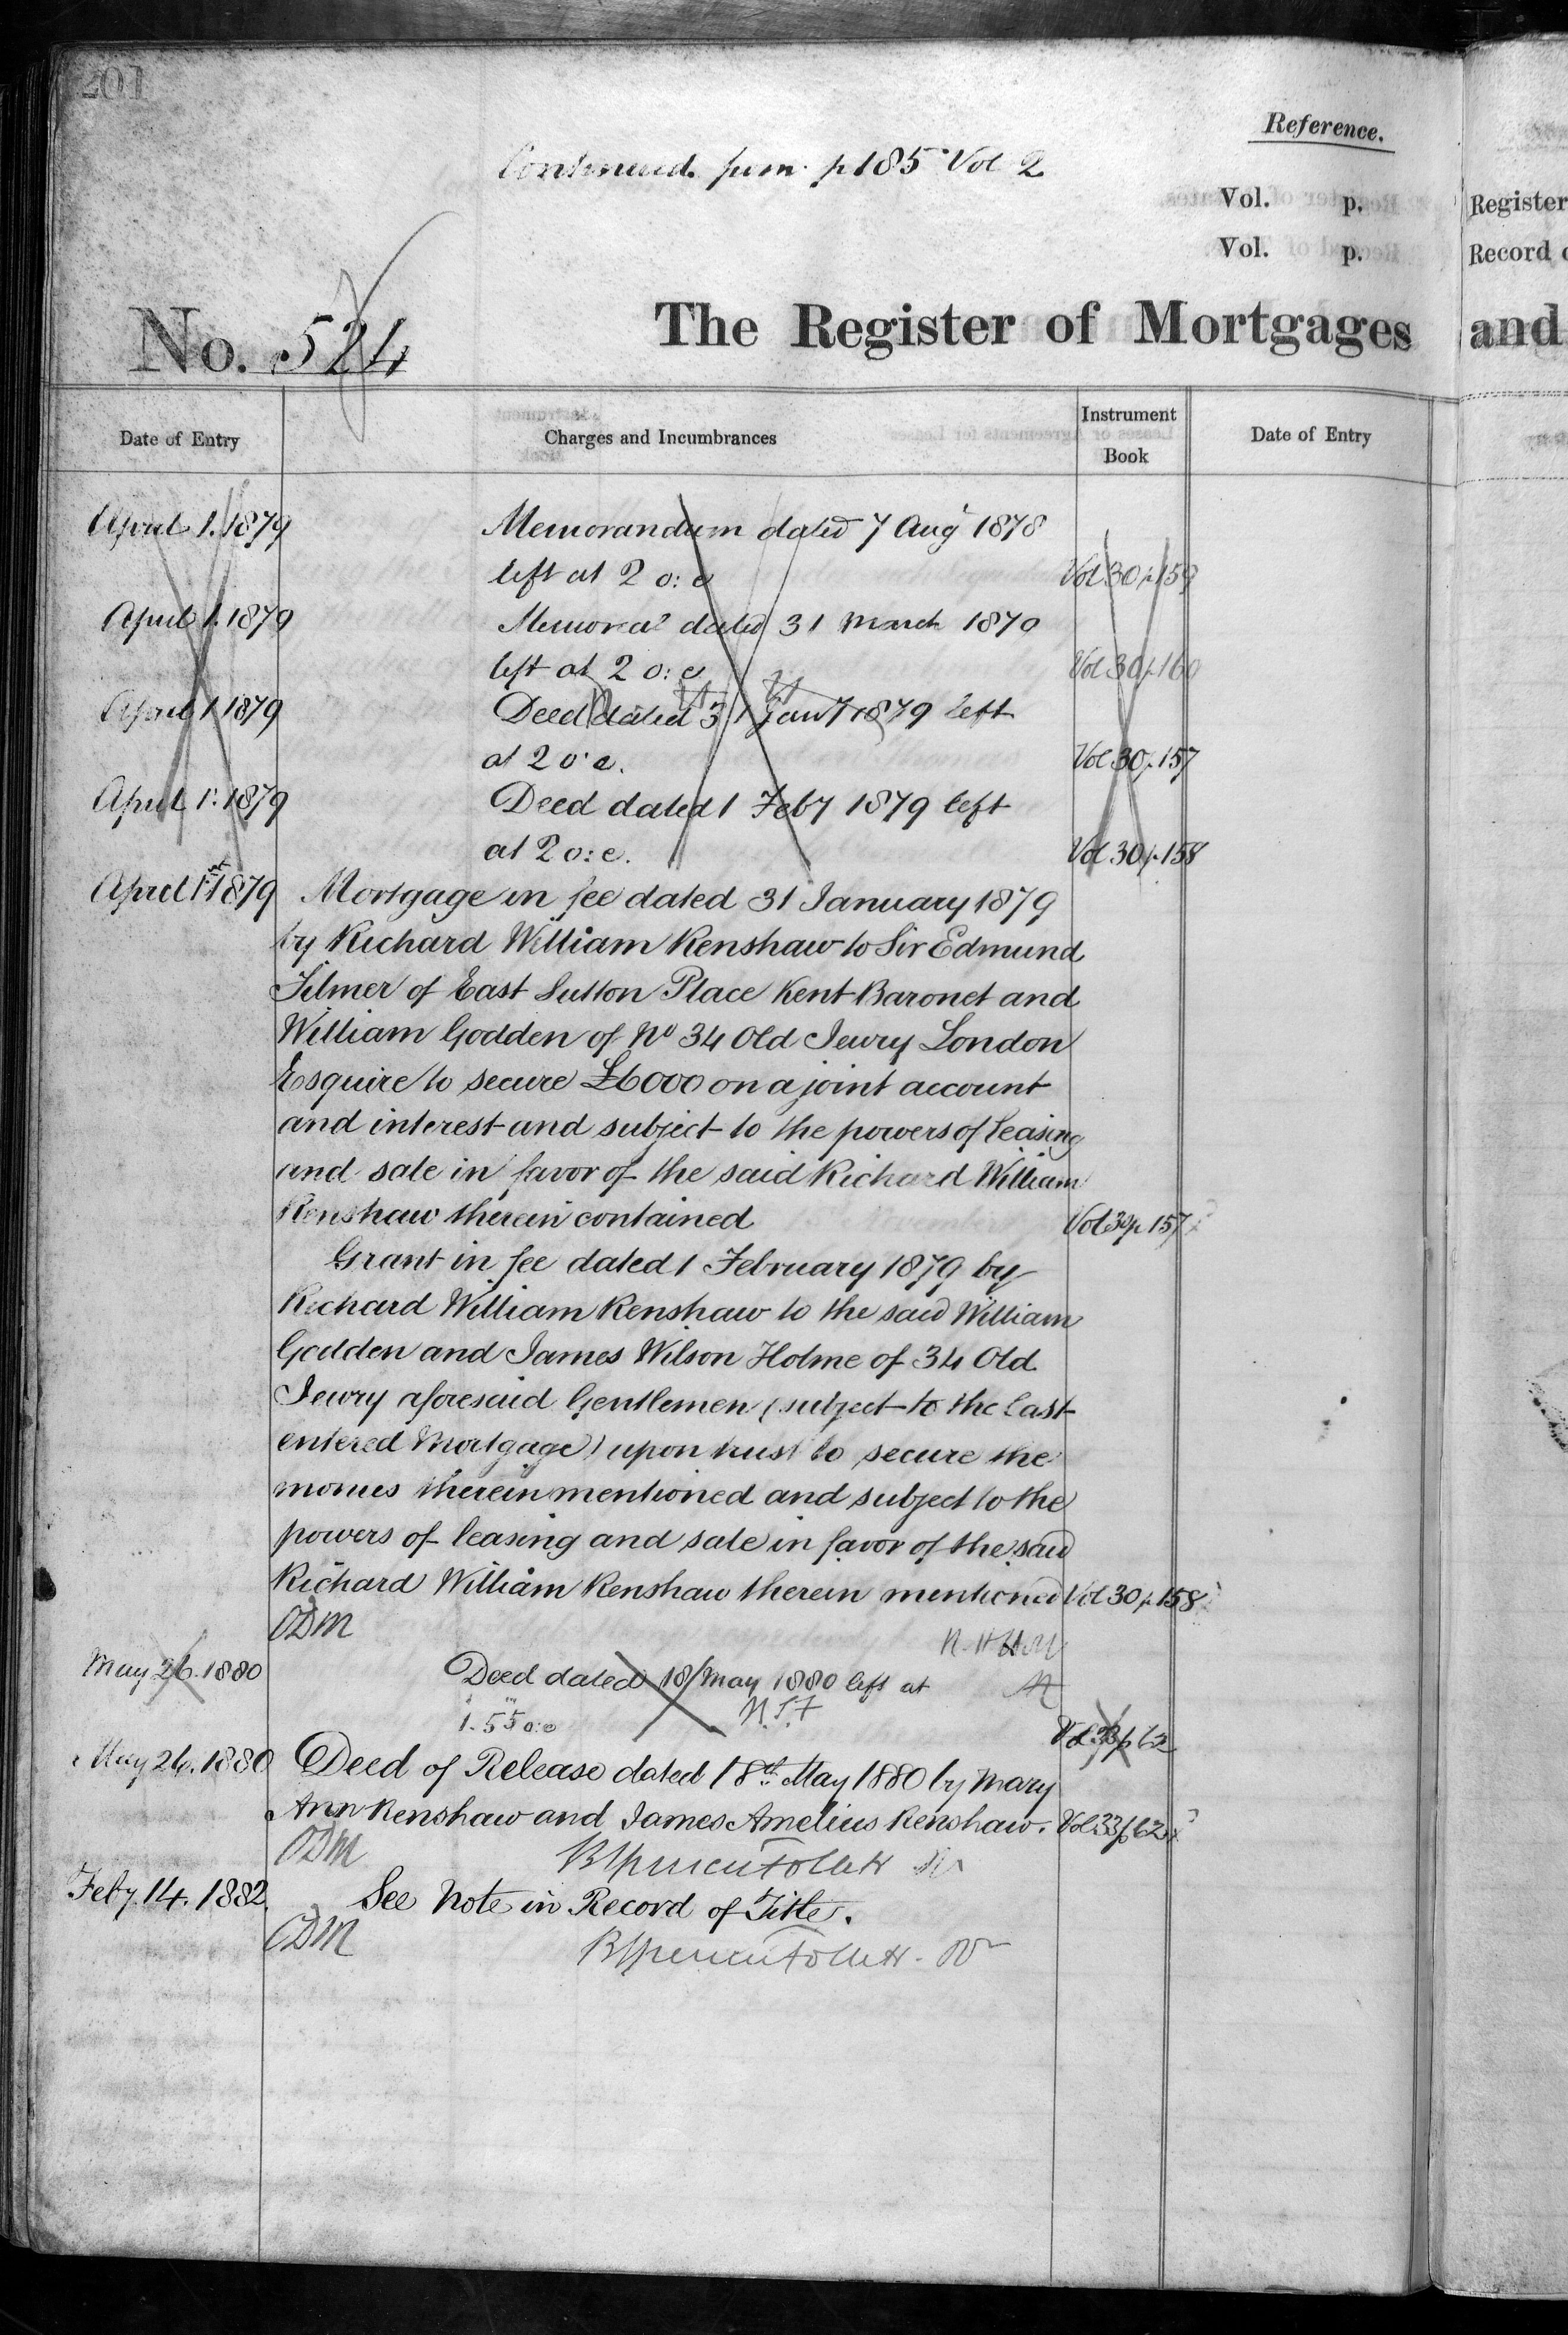 201
Reference.
Continued from p 185 Vol 2
Vol. p.
Vol. p.
Register
Record
No. 524
The Register of Mortgages and
Date of Entry
Charges and Incumbrances
Instrument
Book
Date of Entry
April 1. 1879 Memorandum dated 7 Aug 1878
left at 2 o:c Vol 30 p 159
April 1. 1879 dated 31 March 1879
left at 2 o:c Vol 30 p 160
April 1 1879 Deed dated 31 Jany 1879 left
at 2 o'c. Vol 30 p. 157
April 1. 1879 Deed dated 1 Feby 1879 left
at 2 o:c. Vol 30 p. 158
April 1st 1879 Mortgage in fee dated 31 January 1879
by Richard William Renshaw to Sir Edmund
Filmer of East Sutton Place Kent Baronet and
William Godden of No 34 Old Jewry London
Esquire to secure £6000 on a joint account
and interest and subject to the powers of leasing
and sale in favor of the said Richard William
Renshaw therein contained Vol 30 p. 157
Grant in fee dated 1 February 1879 by
Richard William Renshaw to the said William
Godden and James Wilson Holme of 34 Old
Jewry aforesaid Gentlemen (subject to the last
entered Mortgage) upon trust to secure the
monies therein mentioned and subject to the
powers of leasing and sale in favor of the said
Richard William Renshaw therein mentioned Vol 30 p. 158
ODM
May 26. 1880 Deed dated 18 May 1880 left at
1.55 o:c Vol 33 p 62
May 26. 1880 Deed of Release dated 18th May 1880 by Mary
Ann Renshaw and James Amelius Renshaw. Vol 33 p 62
ODM
Feby. 14. 1882. See Note in Record of Title.
ODM